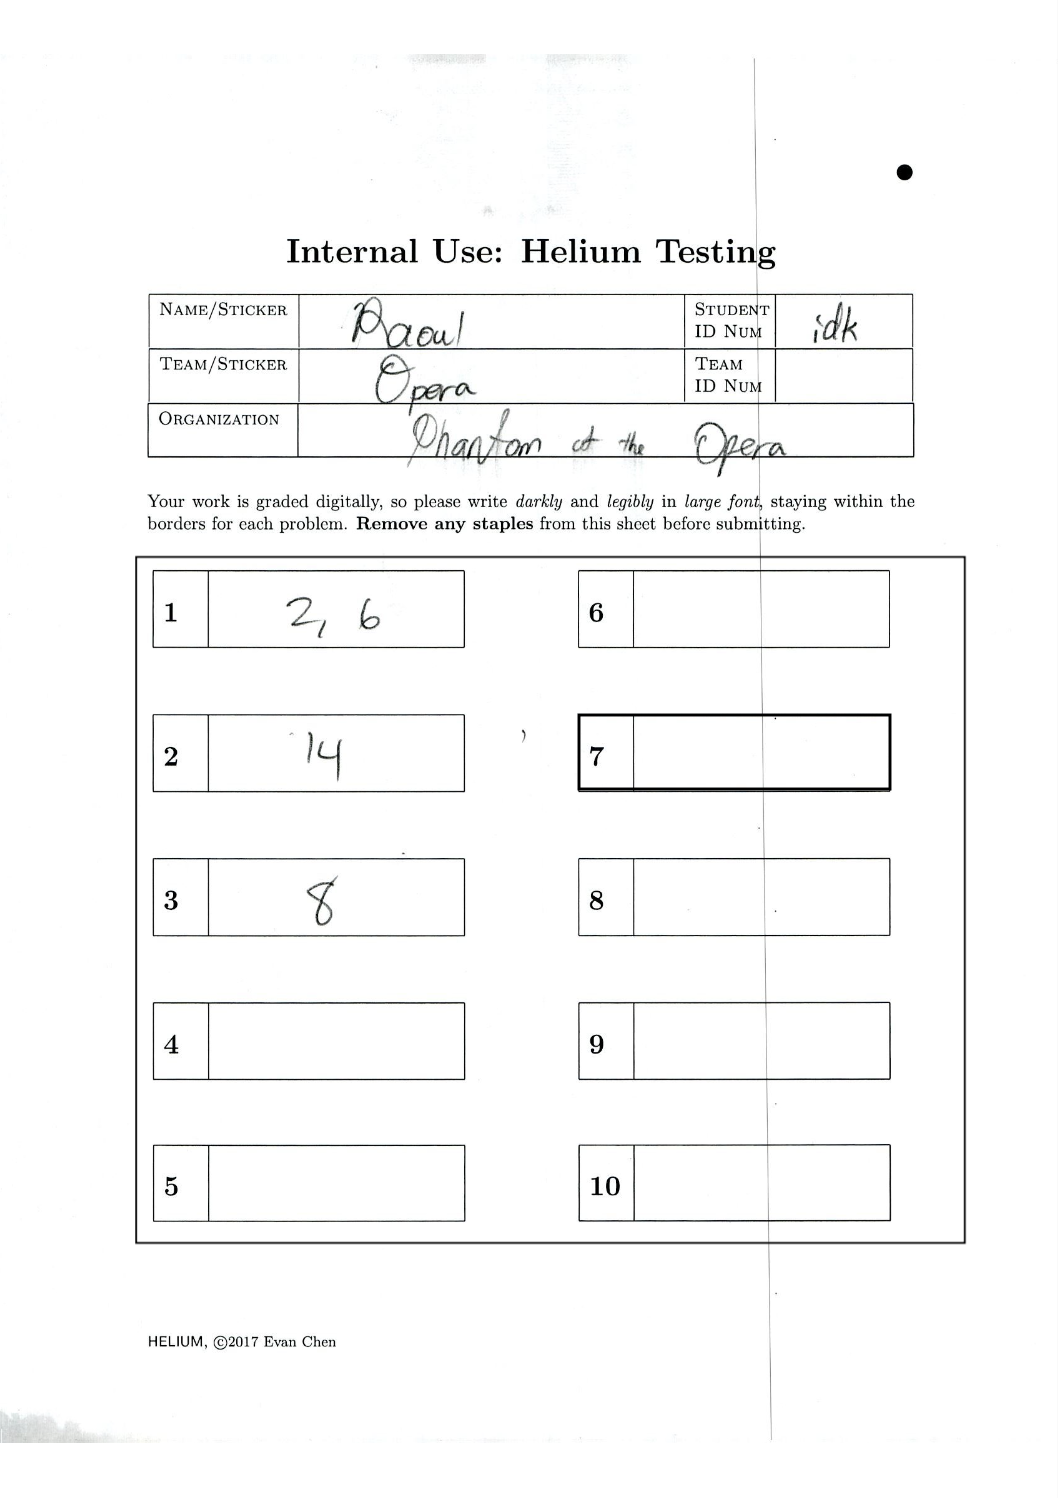 Internal Use: Helium Testing
Name/Sticker Raoul Student ID Num idk
Team/Sticker Opera Team ID Num
Organization Phantom of the Opera
Your work is graded digitally, so please write darkly and legibly in large font, staying within the
borders for each problem. Remove any staples from this sheet before submitting.
1 2, 6
2 14
3 8
4
5
6
7
8
9
10
HELIUM, ©2017 Evan Chen